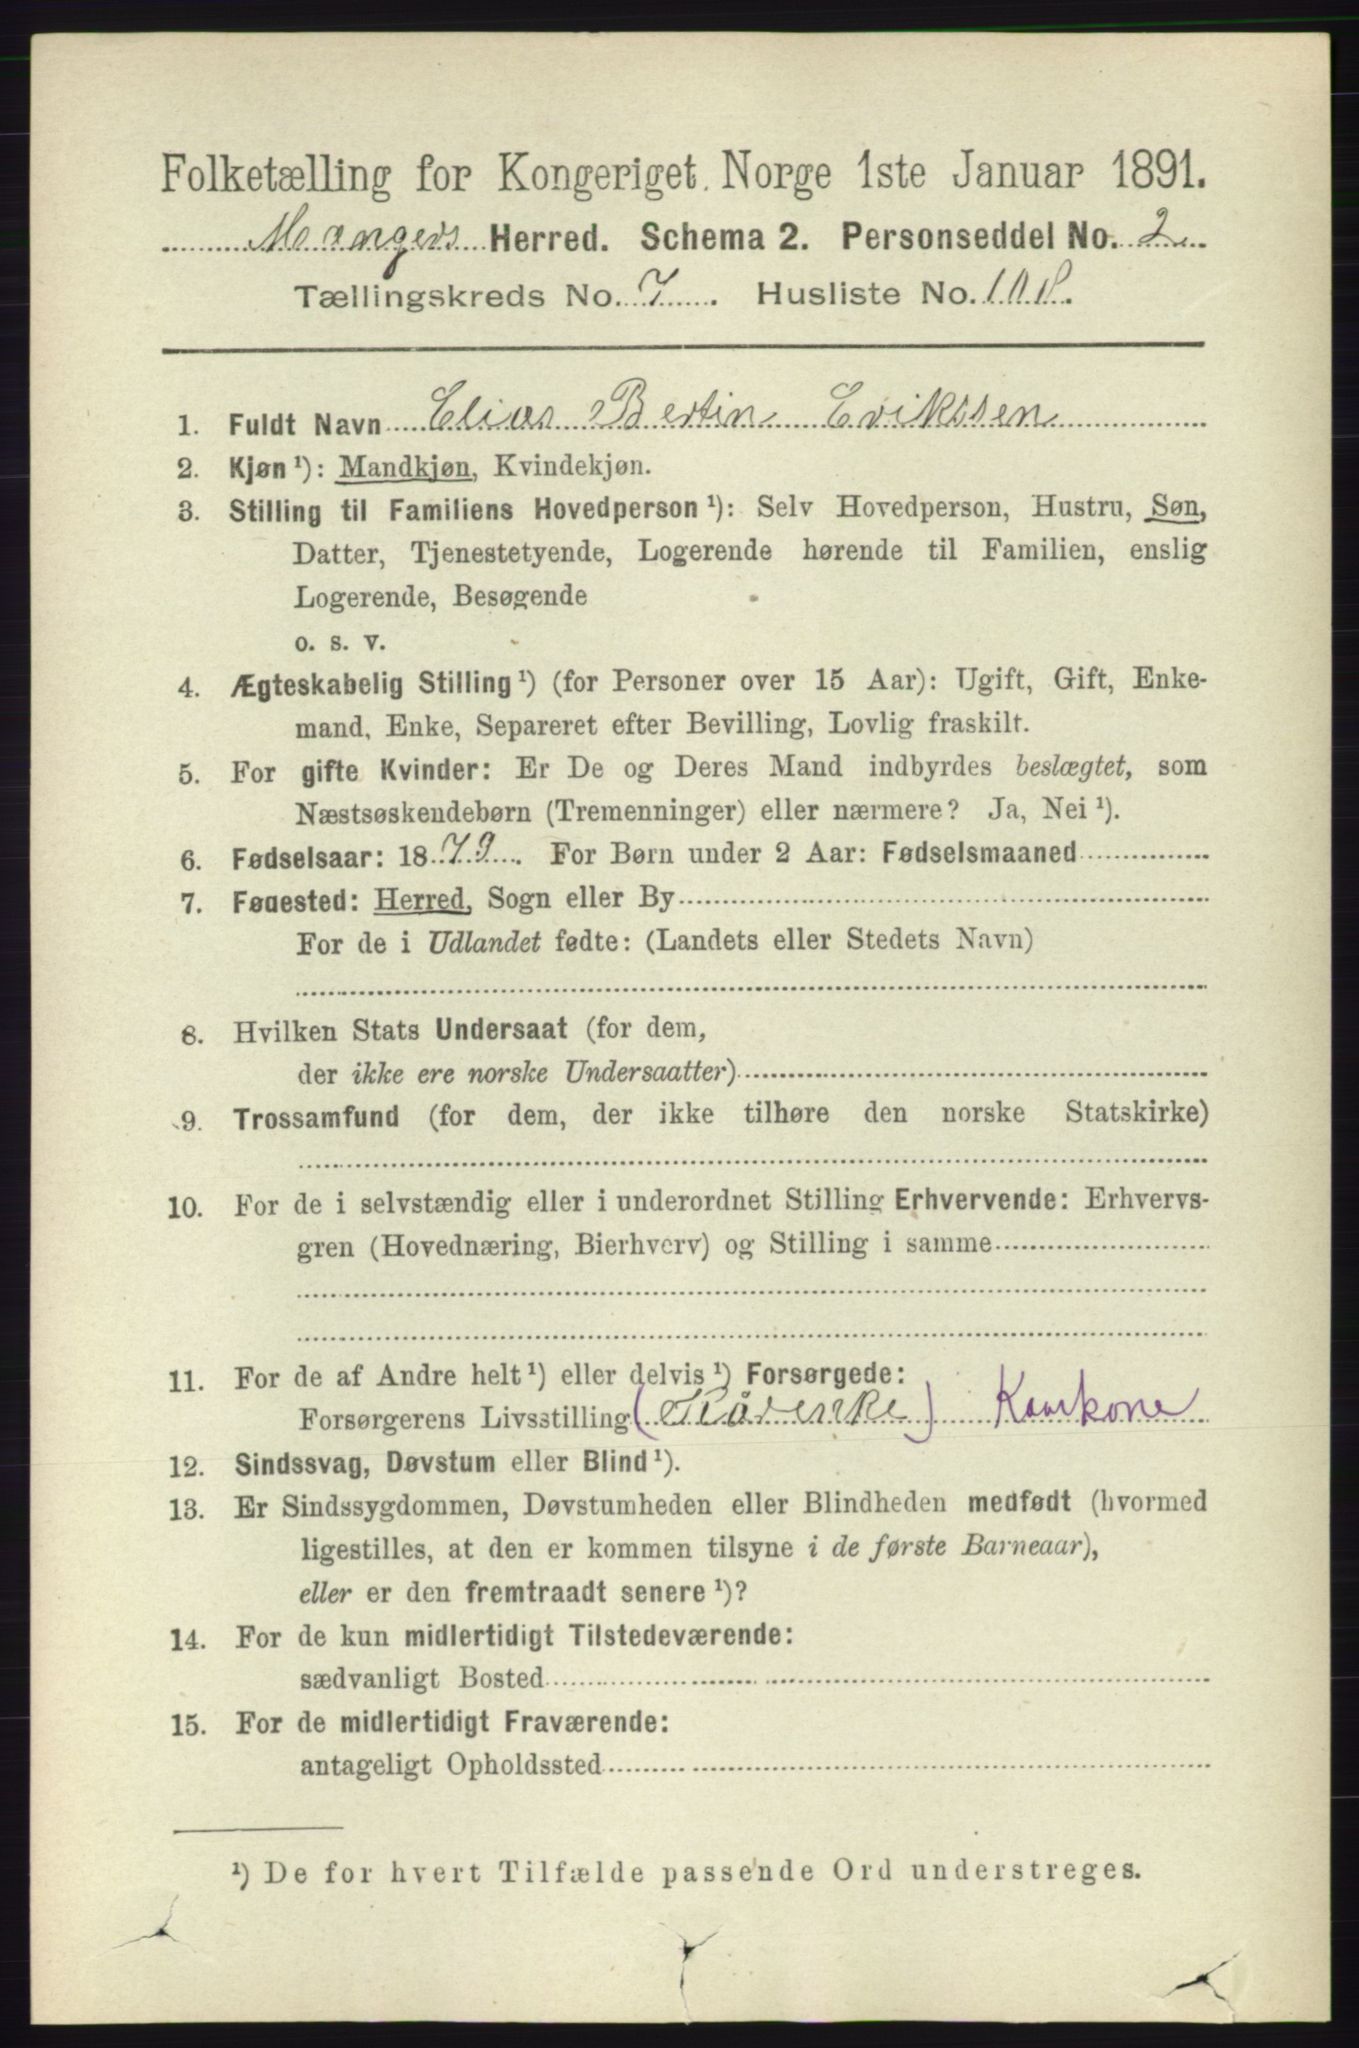 Folketælling for Kongeriget Norge 1ste Januar 1891.
Mangers Herred. Schema 2. Personseddel No. 2
Tællingskreds No. 7. Husliste No. 108.
1. Fuldt Navn Elias Bertin Erikssen
2. Kjøn ¹): Mandkjøn, Kvindekjøn.
3. Stilling til Familiens Hovedperson ¹): Selv Hovedperson, Hustru, Søn,
Datter, Tjenestetyende, Logerende hørende til Familien, enslig
Logerende, Besøgende
o. s. v.
4. Ægteskabelig Stilling ¹) (for Personer over 15 Aar): Ugift, Gift, Enke-
mand, Enke, Separeret efter Bevilling, Lovlig fraskilt.
5. For gifte Kvinder: Er De og Deres Mand indbyrdes beslægtet, som
Næstsøskendebørn (Tremenninger) eller nærmere? Ja, Nei ¹).
6. Fødselsaar: 1879. For Børn under 2 Aar: Fødselsmaaned
7. Fødested: Herred, Sogn eller By
For de i Udlandet fødte: (Landets eller Stedets Navn)
8. Hvilken Stats Undersaat (for dem,
der ikke ere norske Undersaatter)
9. Trossamfund (for dem, der ikke tilhøre den norske Statskirke)
10. For de i selvstændig eller i underordnet Stilling Erhvervende: Erhvervs-
gren (Hovednæring, Bierhverv) og Stilling i samme
11. For de af Andre helt ¹) eller delvis ¹) Forsørgede:
Forsørgerens Livsstilling (Kårenke) Kaarkone
12. Sindssvag, Døvstum eller Blind ¹).
13. Er Sindssygdommen, Døvstumheden eller Blindheden medfødt (hvormed
ligestilles, at den er kommen tilsyne i de første Barneaar),
eller er den fremtraadt senere ¹)?
14. For de kun midlertidigt Tilstedeværende:
sædvanligt Bosted
15. For de midlertidigt Fraværende:
antageligt Opholdssted
¹) De for hvert Tilfælde passende Ord understreges.